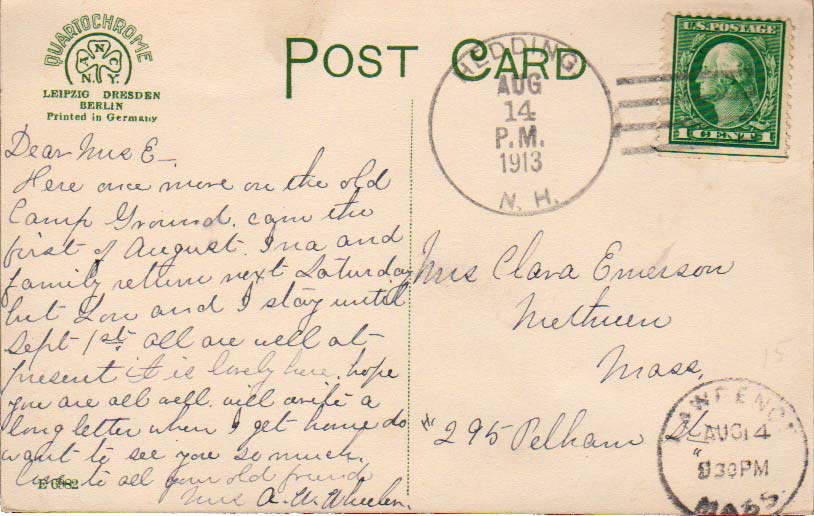 QUARTOCHROME
A N C
N. Y.
LEIPZIG DRESDEN
BERLIN
Printed in Germany
POST CARD
HEDDING
AUG
14
P.M.
1913
N. H.
U.S. POSTAGE
1 CENT 1
Dear Mrs E—
Here once more on the old
Camp Ground. cam the
first of August. Ina and
family return next Saturday
but Lou and I stay until
Sept 1st. all are well at
present it is lovely here. hope
you are all well. will write a
long letter when I get home do
want to see you so much.
Love to all your old friend
Mrs A. W. Wheeler.
Mrs Clara Emerson
Methuen
Mass,
"295 Pelham St "
15
LAWRENCE
AUG 14
930PM
MASS.
E 6982